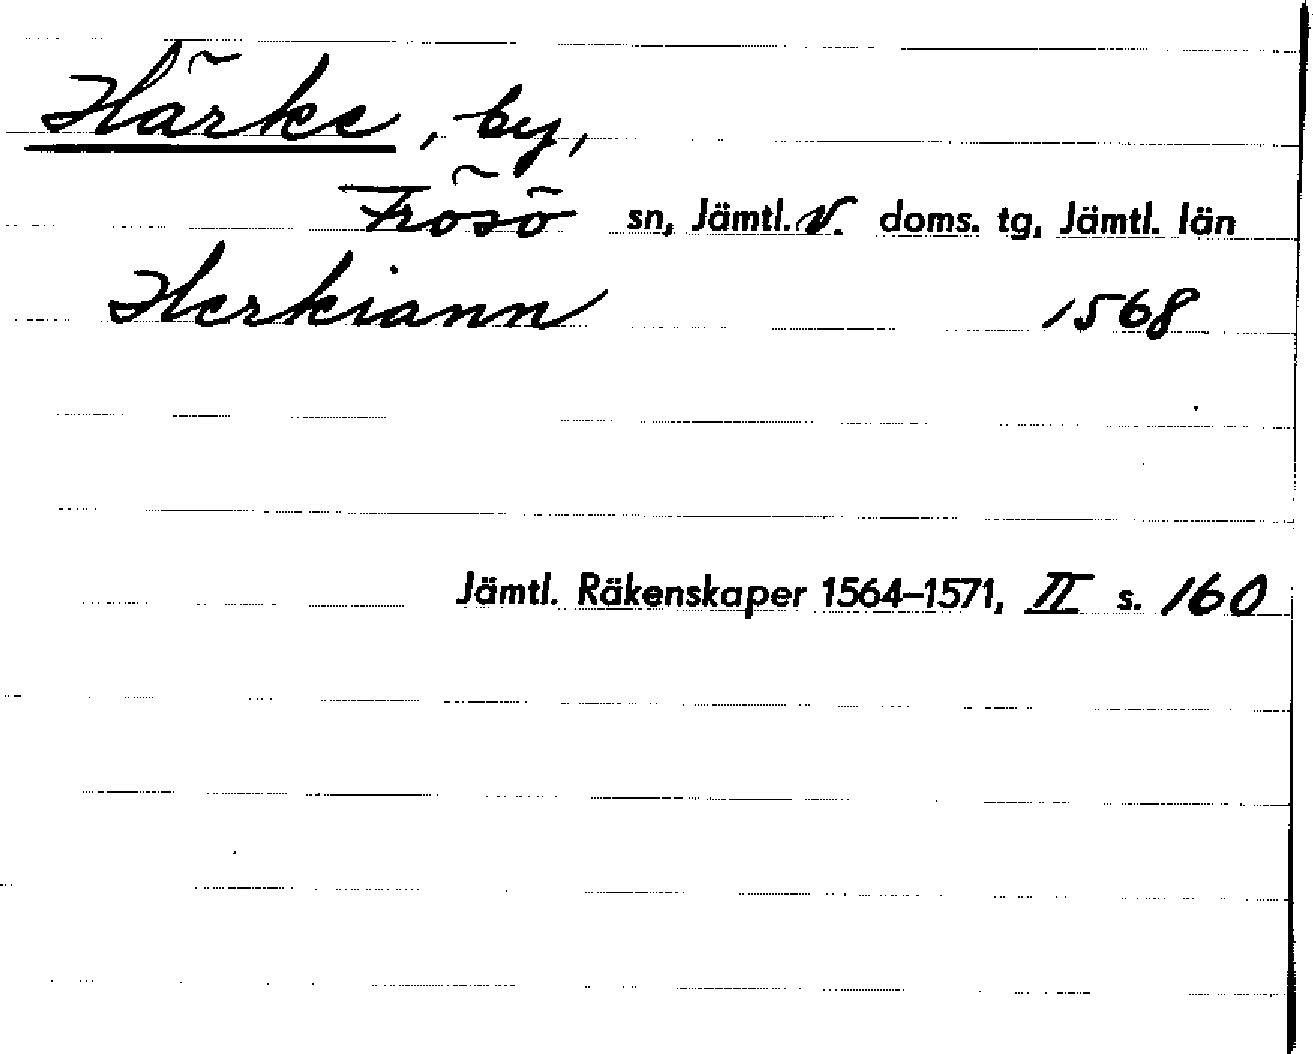 Härke, by,
Frösö sn, Jämtl. V. doms. tg, Jämtl. län
Herkiann 1568
Jämtl. Räkenskaper 1564–1571, II s. 160